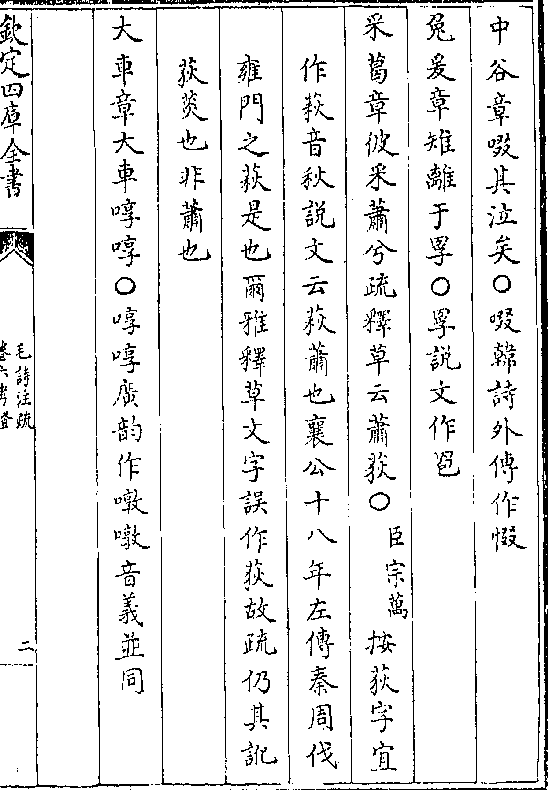 中谷章啜其泣矣○啜韓詩外傳作惙
兔爰章雉離于罦○罦說文作䍖
采葛章彼采蕭兮疏釋草云蕭荻○臣宗萬按荻字宜
作萩音秋說文云萩蕭也襄公十八年左傳秦周伐
雍門之萩是也爾雅釋草文字誤作荻故疏仍其訛
荻䓤也非蕭也
大車章大車啍啍○啍啍廣韵作噋噋音義並同
欽定四庫全書
毛詩注疏
卷六考證
二